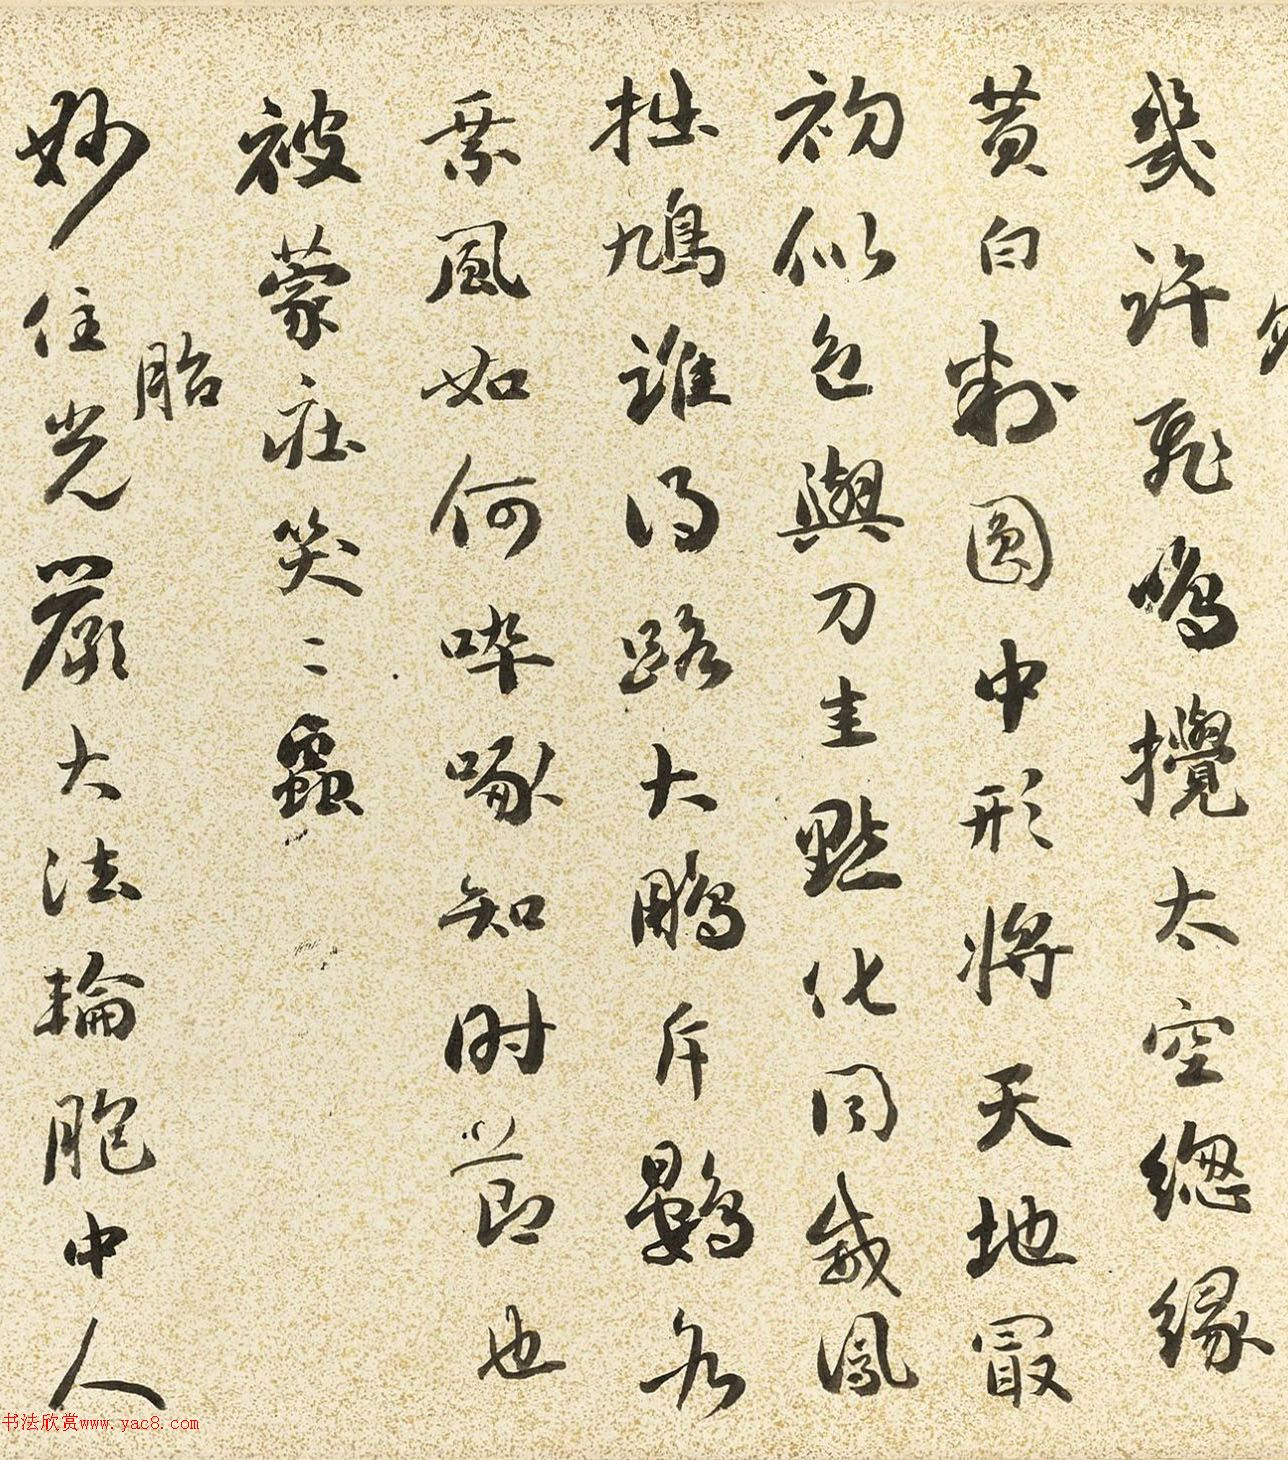 幾許飛鳴攪太空總緣
黃白割圓中形將天地最
初似色與刀圭點化同威鳳
拙鳩誰得路大鵬斥鷃各
乘風如何啐啄知時節也
被蒙莊笑二蟲
胎
妙住光嚴大法輪胞中人
书法欣赏www.yac8.com